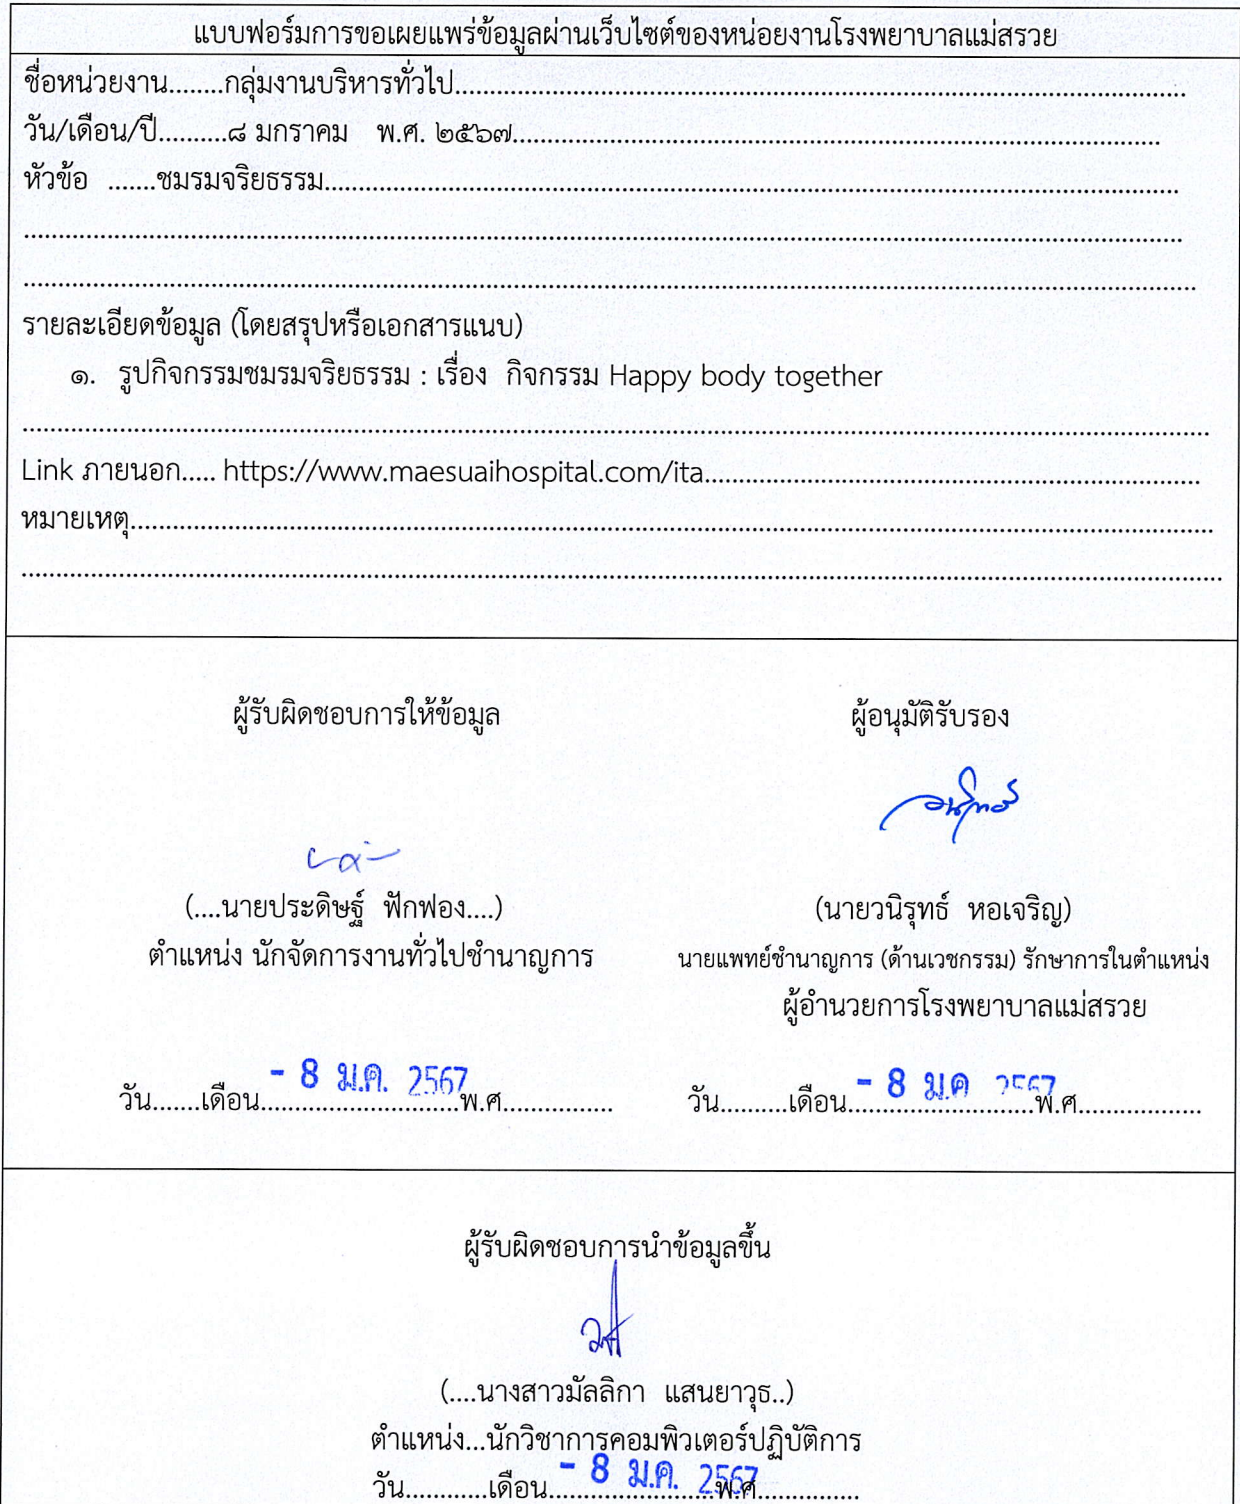 แบบฟอร์มการขอเผยแพร่ข้อมูลผ่านเว็บไซต์ของหน่อยงานโรงพยาบาลแม่สรวย
ชื่อหน่วยงาน........กลุ่มงานบริหารทั่วไป..........................................................................................................
วัน/เดือน/ปี..........๘ มกราคม พ.ศ. ๒๕๖๗..............................................................................................
หัวข้อ .......ชมรมจริยธรรม...........................................................................................................................
........................................................................................................................................................................
..........................................................................................................................................................................
รายละเอียดข้อมูล (โดยสรุปหรือเอกสารแนบ)
๑. รูปกิจกรรมชมรมจริยธรรม : เรื่อง กิจกรรม Happy body together
............................................................................................................................................................................
Link ภายนอก..... https://www.maesuaihospital.com/ita........................................................................
หมายเหตุ.............................................................................................................................................................
..............................................................................................................................................................................
ผู้รับผิดชอบการให้ข้อมูล ผู้อนุมัติรับรอง
(....นายประดิษฐ์ ฟักฟอง....) (นายวนิรุทธ์ หอเจริญ)
ตำแหน่ง นักจัดการงานทั่วไปชำนาญการ นายแพทย์ชำนาญการ (ด้านเวชกรรม) รักษาการในตำแหน่ง
ผู้อำนวยการโรงพยาบาลแม่สรวย
- 8 ม.ค. 2567 - 8 ม.ค 2567
วัน.......เดือน.............................พ.ศ................ วัน..........เดือน...........................พ.ศ..................
ผู้รับผิดชอบการนำข้อมูลขึ้น
(....นางสาวมัลลิกา แสนยาวุธ..)
ตำแหน่ง...นักวิชาการคอมพิวเตอร์ปฏิบัติการ
- 8 ม.ค. 2567
วัน............เดือน........................พ.ศ...............